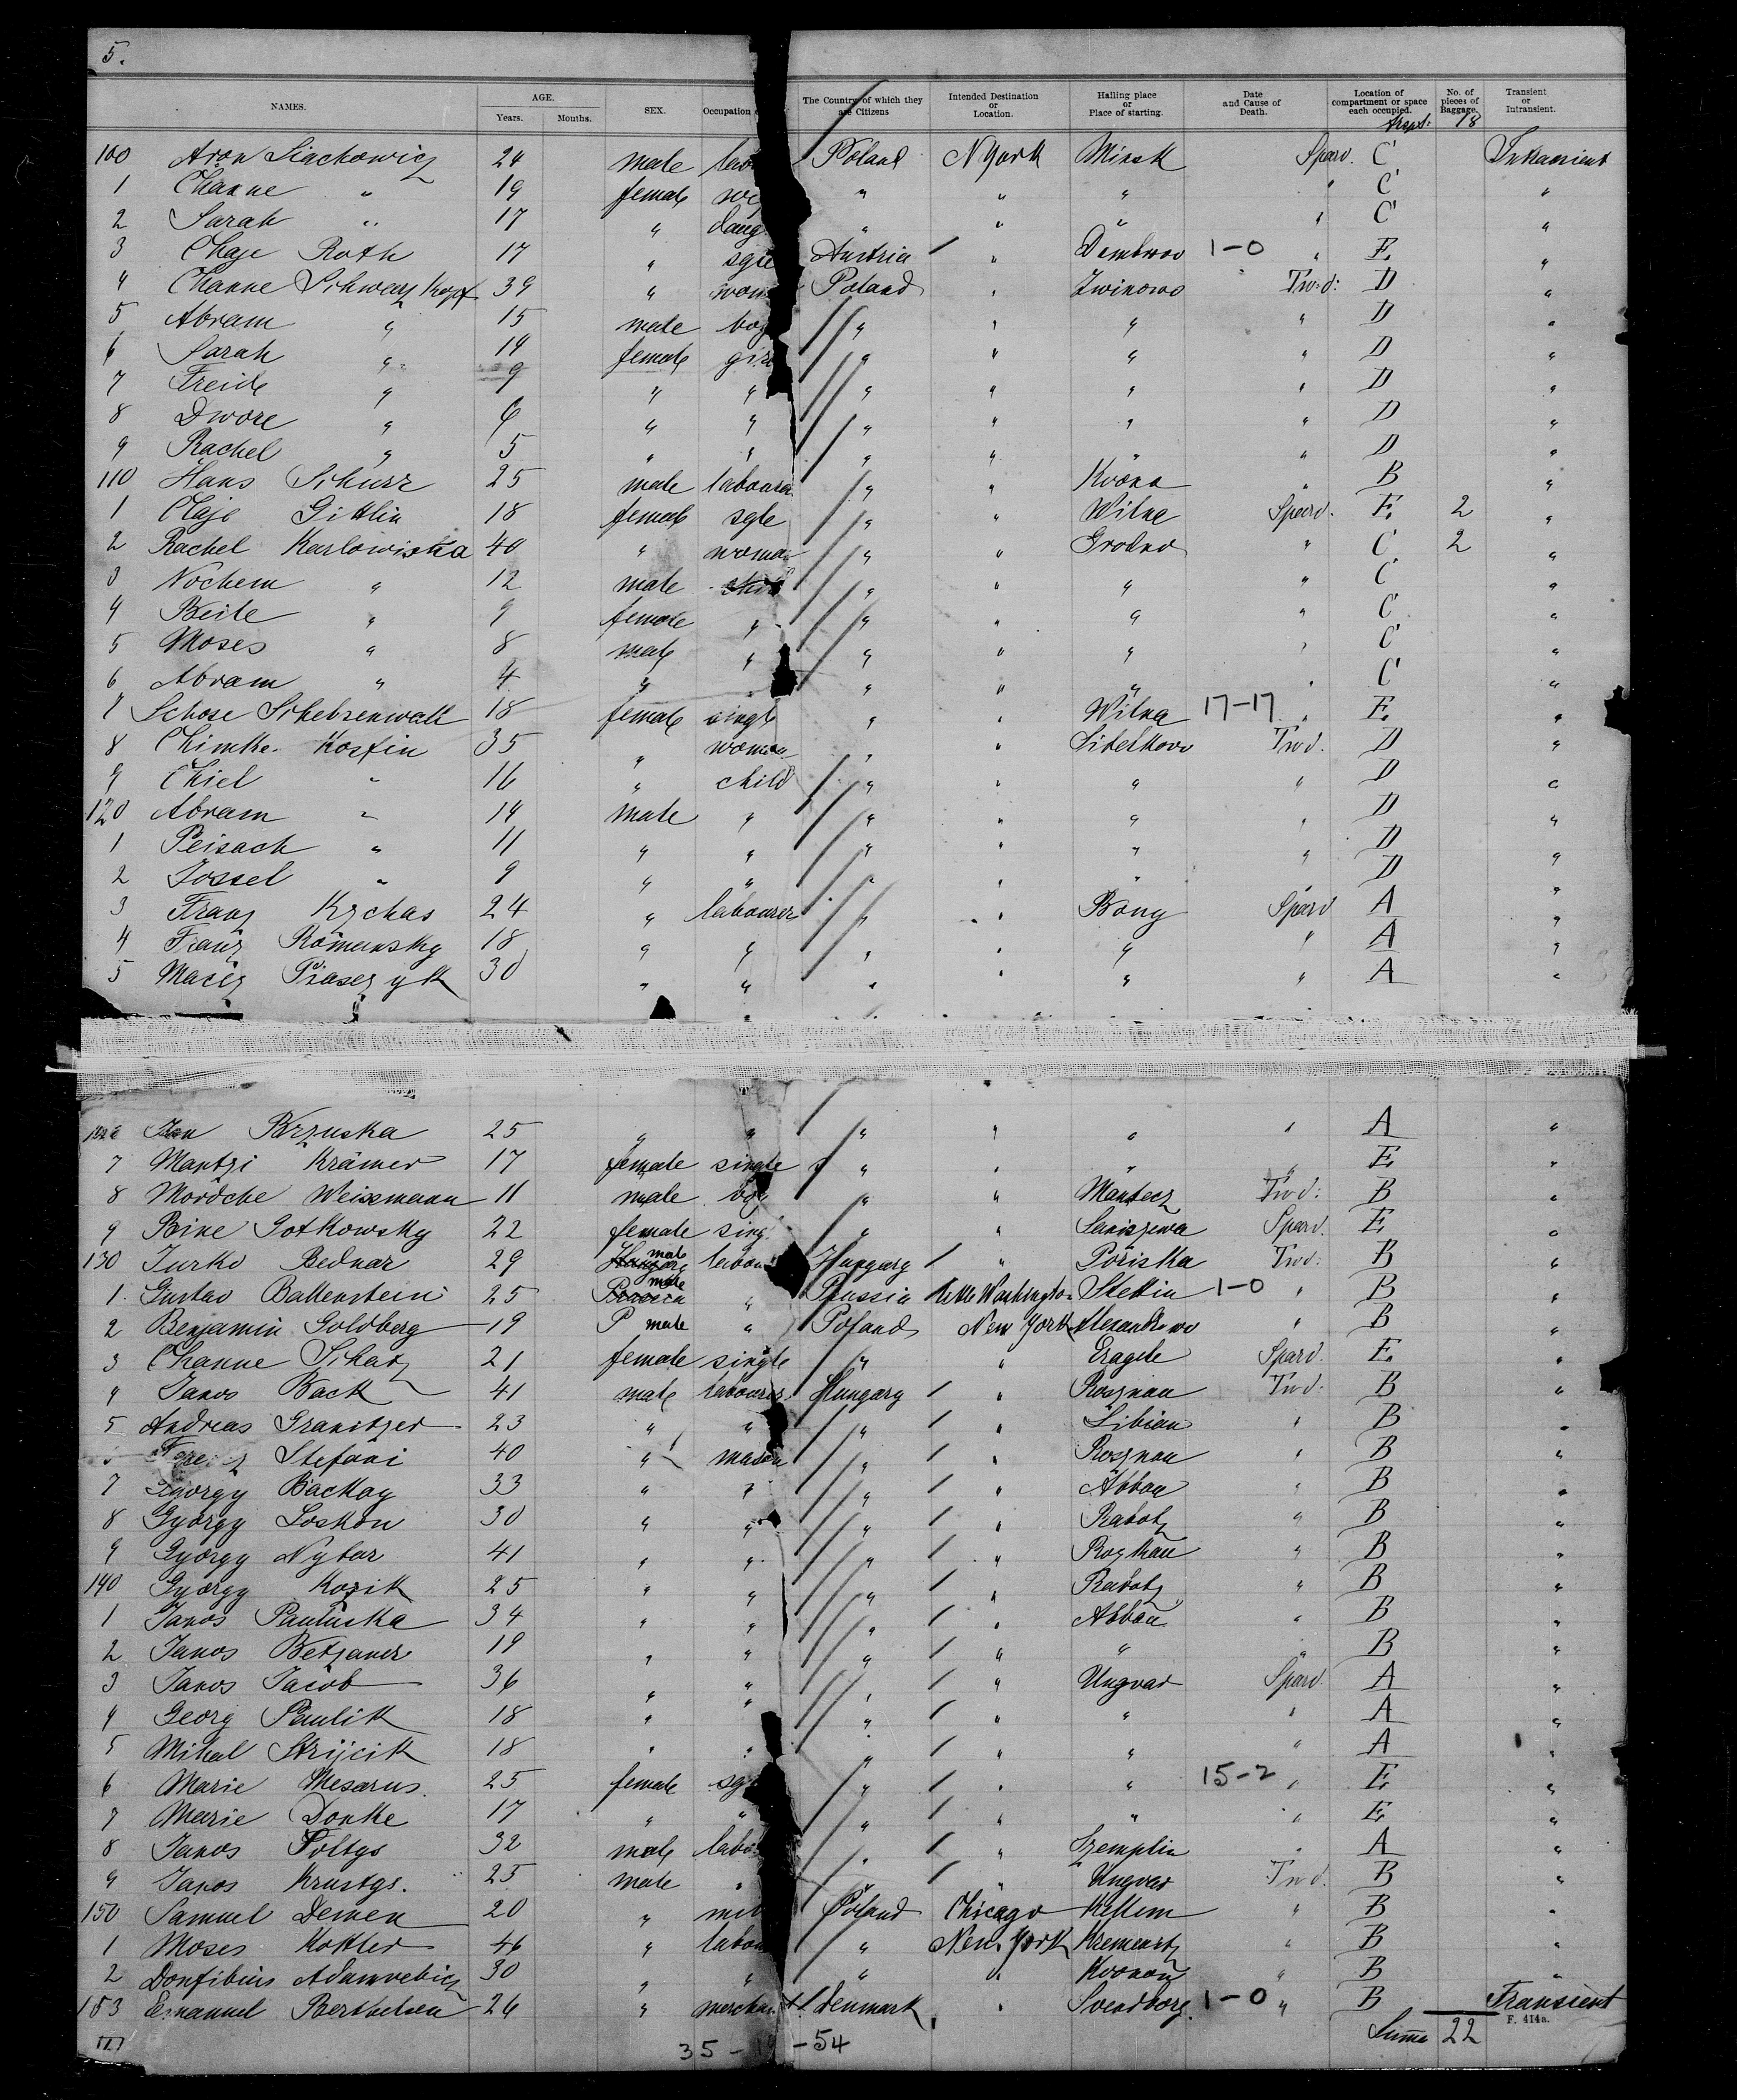 5.
NAMES. AGE. SEX. Occupation The Country of which they are Citizens Intended Destination or Location. Hailing place or Place of starting. Date and Cause of Death. Location of compartment or space each occupied. No. of pieces of Baggage. Transient or Intransient.
Years. Months.
18
100 Aron Siackowicz 24 male lab Poland NYork Minsk Spard. C Intransient
1 Channe " 19 female " " " " C "
2 Sarah " 17 " daug " " " " C "
3 Chaje Roth 17 " sgle Austria " Dembrow 1-0 " E "
4 Channe Schwarzkopf 39 " wom Poland " Zwinowo Twd: D "
5 Abram " 15 male boy " " " " D "
6 Sarah " 14 female girl " " " " D "
7 Freide " 9 " " " " " " D "
8 Dwore " 6 " " " " " " D "
9 Rachel " 5 " " " " " " D "
110 Hans Schurz 25 male labourer " " " B "
1 Chaje Gittlin 18 female sgle " " Wilna Spard. E 2 "
2 Rachel Karlowiska 40 " woman " " Grodno " C 2 "
3 Nochem " 12 male child " " " " C "
4 Beile " 9 female " " " " " C "
5 Moses " 8 male " " " " " C "
6 Abram " 4 " " " " " " C "
7 Schose Schebsenwoll 18 female single " " Wilna 17-17 " E "
8 Chimke Korfin 35 " woman " " Twd. D "
9 Chiel " 16 " child " " " " D "
120 Abram " 14 male " " " " " D "
1 Peisach " 11 " " " " " " D "
2 Jossel " 9 " " " " " " D "
3 Franz Kzchas 24 " labourer " " Bong Spard A "
4 Franz Romansky 18 " " " " " " A "
5 Maciz Piaseczyk 30 " " " " " " A "
Jan Brzuska 25 " " " " " " A "
7 Mantzi Krämer 17 female single " " " " E "
8 Mordche Weissmann 11 male boy " " Mantecz Twd: B "
9 Beine Gotkowsky 22 female sing. " " Spard. E "
130 Jurko Bednar 29 male labou Hungary " Poriska Twd: B "
1 Gustav Balkenstein 25 male " Prussia Washington Stettin 1-0 " B "
2 Benjamin Goldberg 19 P male " Poland New York " B "
3 Channe Schatz 21 female single " " Eragele Spard. E "
4 Janos Back 41 male labourer Hungary " Rosznau Twd: B "
5 Andreas Granitzer 23 " " " " Libian " B "
Stefani 40 " mason " " Rosznau " B "
7 György Backay 33 " " " " Abbau " B "
8 György Loskon 30 " " " " Rabotz " B "
9 György Nytar 41 " " " " " B "
140 György Kozik 25 " " " " Rabotz " B "
1 Janos Pauluska 34 " " " " Abbau " B "
2 Janos Betzaner 19 " " " " " " B "
3 Janos Jacob 36 " " " " Ungvar Spard. A "
4 Georg Paulik 18 " " " " " " A "
5 Mihal Strijcik 18 " " " " " " A "
6 Marie Mesarus. 25 female sg " " " 15-2 " E "
7 Marie Donke 17 " " " " " " E "
8 Janos Poltys 32 male labo " " Szemplin " A "
9 Janos Krustys. 25 male " " " Ungvar Twd. B "
150 Samuel Demen 20 " Poland Chicago Kellem " B "
1 Moses Kokller 46 " labou " New York " B "
2 30 " " " " " B "
153 Emanuel Berthelsen 26 " merchan Denmark " Svendborg. 1-0 " B Transient
Summa 22
F. 414a.
35- -54